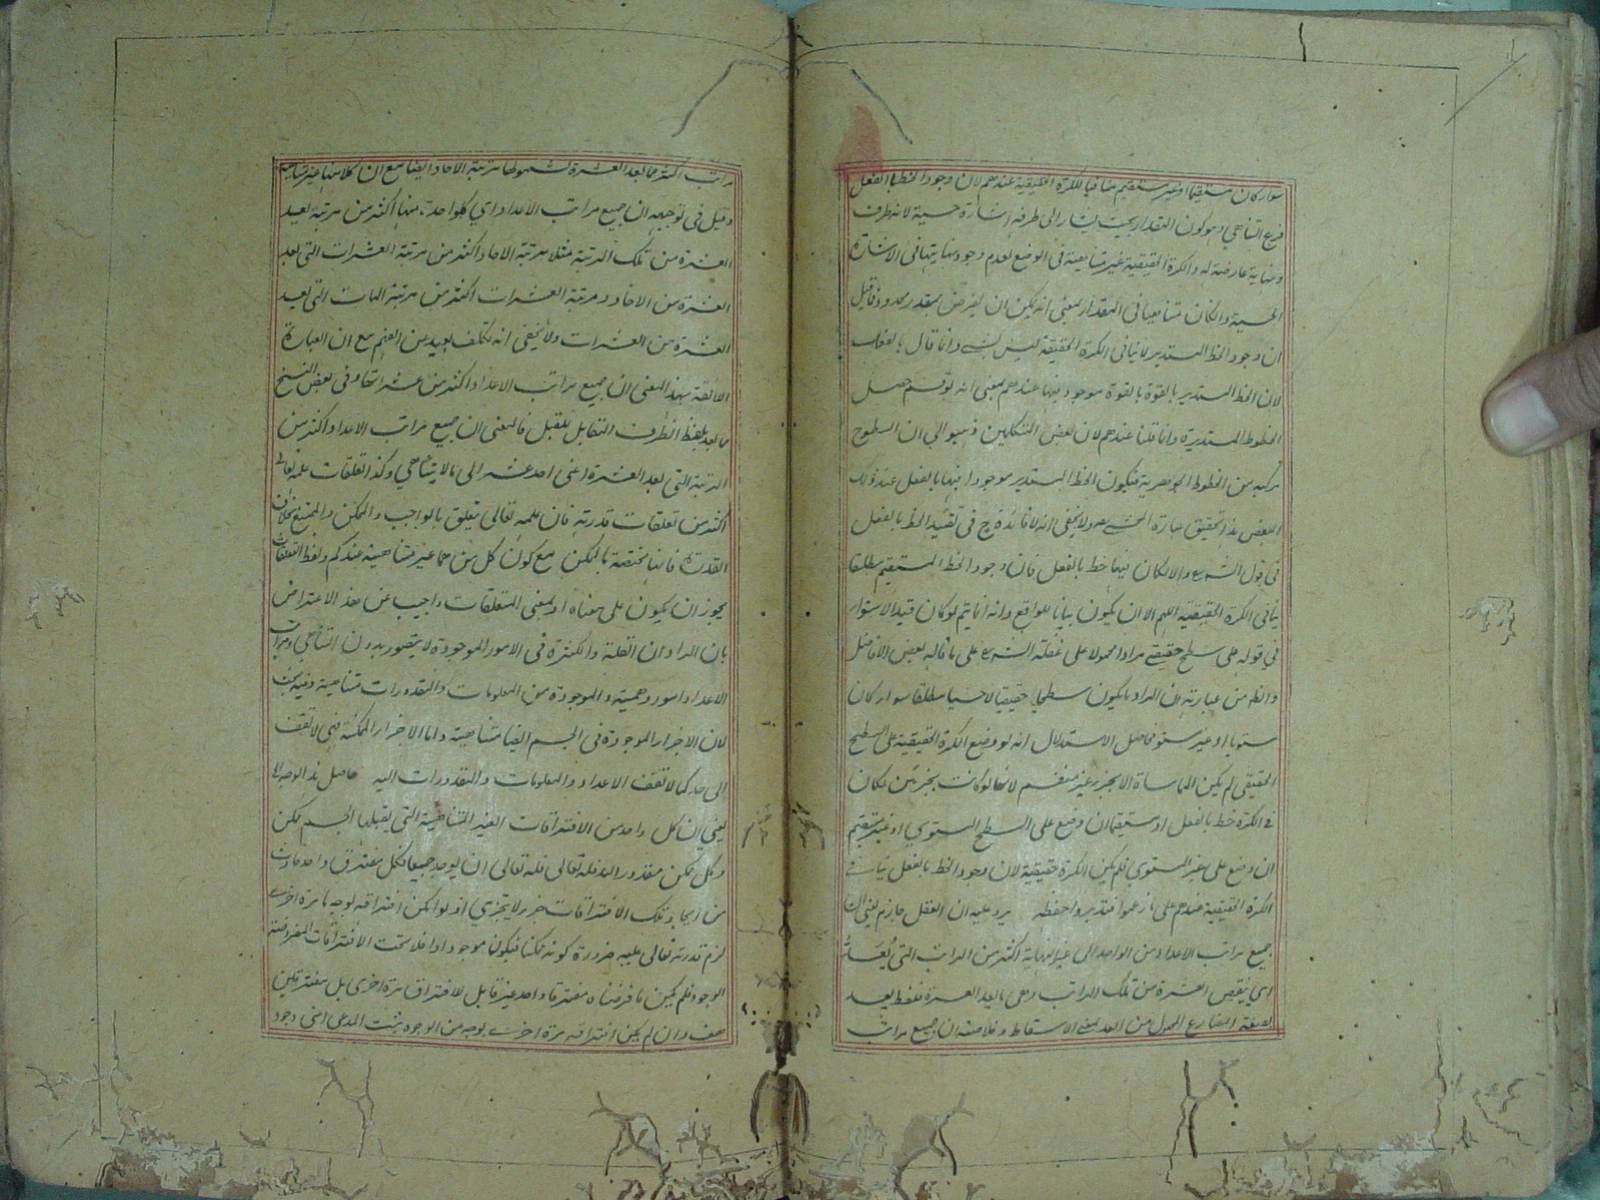 سواء كان مستقيما او غير مستقيم منافيا للكرة الحقيقية عندهم لان وجود الخط بالفعل
فرع التناهي وهو كون المقدار بحيث يشار الى طرفه اشارة حسية لانه طرف
ونهاية عارضة له والكرة الحقيقية غير متناهية في الوضع لعدم وجود نهاية لها في الاشارة
الحسية وان كان متناهيا في المقدار بمعنى انه يمكن ان يفرض بمقدر محدود فما قيل
ان وجود الخط المستدير لا ينافي الكرة الحقيقة ليس بشيء وانما قال بالفعل
لان الخط المستدير بالقوة بالقوة موجود فيها عندهم بمعنى انه لو قسم حصل
الخطوط المستديرة وانما قلنا عندهم لان بعض المتكلمين ذهبوا الى ان السطوح
مركبه من الخطوط الجوهرية فيكون الخط المستدير موجودا فيها بالفعل عند ذلك
البعض هذا تحقيق عبارة المحشي ولا يخفى انه لا فائدة ح في تقييد الخط بالفعل
في قول الشرح والا لكان فيها خط بالفعل فان وجود الخط المستقيم مطلقا
ينافي الكرة الحقيقية اللهم الا ان يكون بيانا للواقع وانه انما يتم لو كان قيد الاستواء
في قوله على سطح حقيقي مرادا محمولا على غفلة الشرح على ما قاله بعض الافاضل
والظ من عبارته ان المراد ما يكون سطحا حقيقيا لا حسيا مطلقا سواء كان
مستويا او غير مستو فحاصل الاستدلال انه لو وضع الكرة الحقيقية على السطح
الحقيقي لم يكن المماساة الا بجزء غير منقسم لانها لو كانت بجزئين لكان
في الكرة خط بالفعل او مستقيما ان وضع على السطح المستوي او غير مستقيم
ان وضع على غير المستوي فلم يكن الكرة حقيقية لان وجود الخط بالفعل ينافي
الكرة الحقيقية عندهم على ما زعموا فتدبر واحفظه يرد عليه ان العقل جازم يعني ان
جميع مراتب الاعداد من الواحد الى غير النهاية اكثر من المراتب التي يُعَدّ
اي ينقص العشرة من تلك المراتب وهي ما بعد العشرة فلفظ يعد
بصيغة المضارع المجهول من العد بمعنى الاسقاط وخلاصته ان جميع مراتب
مراتب اكثر مما بعد العشرة لشمولها مرتبة الآحاد ايضا مع ان كلا منها غير متناهية
وقيل في توجيهه ان جميع مراتب الاعداد اي كل واحدة منها اكثر من مرتبة بعيد
العشرة من تلك المرتبة مثلا مرتبة الآحاد اكثر من مرتبة العشرات التي بعد
العشرة من الآحاد ومرتبة العشرات اكثر من مرتبة المآت التي بعيد
العشرة من العشرات ولا يخفى انه تكلف بعيد من الفهم مع ان العبارة
اللائقة بهذا المعنى ان جميع مراتب الاعداد اكثر من عشراتها وفي بعض النسخ
مما بعد بلفظ الظرف المقابل للقبل فالمعنى ان جميع مراتب الاعداد اكثر من
المرتبة التي بعد العشرة اعني احد عشر الى ما لا يتناهي وكذا تعلقات علمه تعالى
اكثر من تعلقات قدرته فان علمه تعالى يتعلق بالواجب والممكن والممتنع بخلاف
القدرة فانها مختصة بالممكن مع كون كل منهما غير متناهية عندكم ولفظ التعلقات
يجوز ان يكون على معناه او بمعنى المتعلقات واجيب عن هذا الاعتراض
بان المراد ان القلة والكثرة في الامور الموجودة لا يتصور بدون التناهي ومراتب
الاعداد امور وهمية والموجودة من المعلومات والمقدورات متناهية وفيه بحث
لان الاجزاء الموجودة في الجسم ايضا متناهية واما الاجزاء الممكنة فهي لا تقف
الى حد كما لا تقف الاعداد والمعلومات والمقدورات اليه حاصل هذا الوجه الخ
يعني ان كل واحد من الافتراقات الغير المتناهية التي يقبلها الجسم ممكن
وكل ممكن مقدور الله فله تعالى ان يوجد جميعها فكل مفترق واحد حادث
من ايجاد تلك الافتراقات جزء لا يتجزى اذ لو امكن افتراقه بوجه ما مرة اخرى
لزم قدرته تعالى عليه ضرورة كونه ممكنا فيكون موجودا داخلا تحت الافتراقات المفروضة
الوجود فلم يكن ما فرضناه مفترقا واحدا غير قابل للافتراق مرة اخرى بل مفترقين
هف وان لم يكن افتراقه مرة اخرى بوجه من الوجوه يثبت المدعى اعني وجود